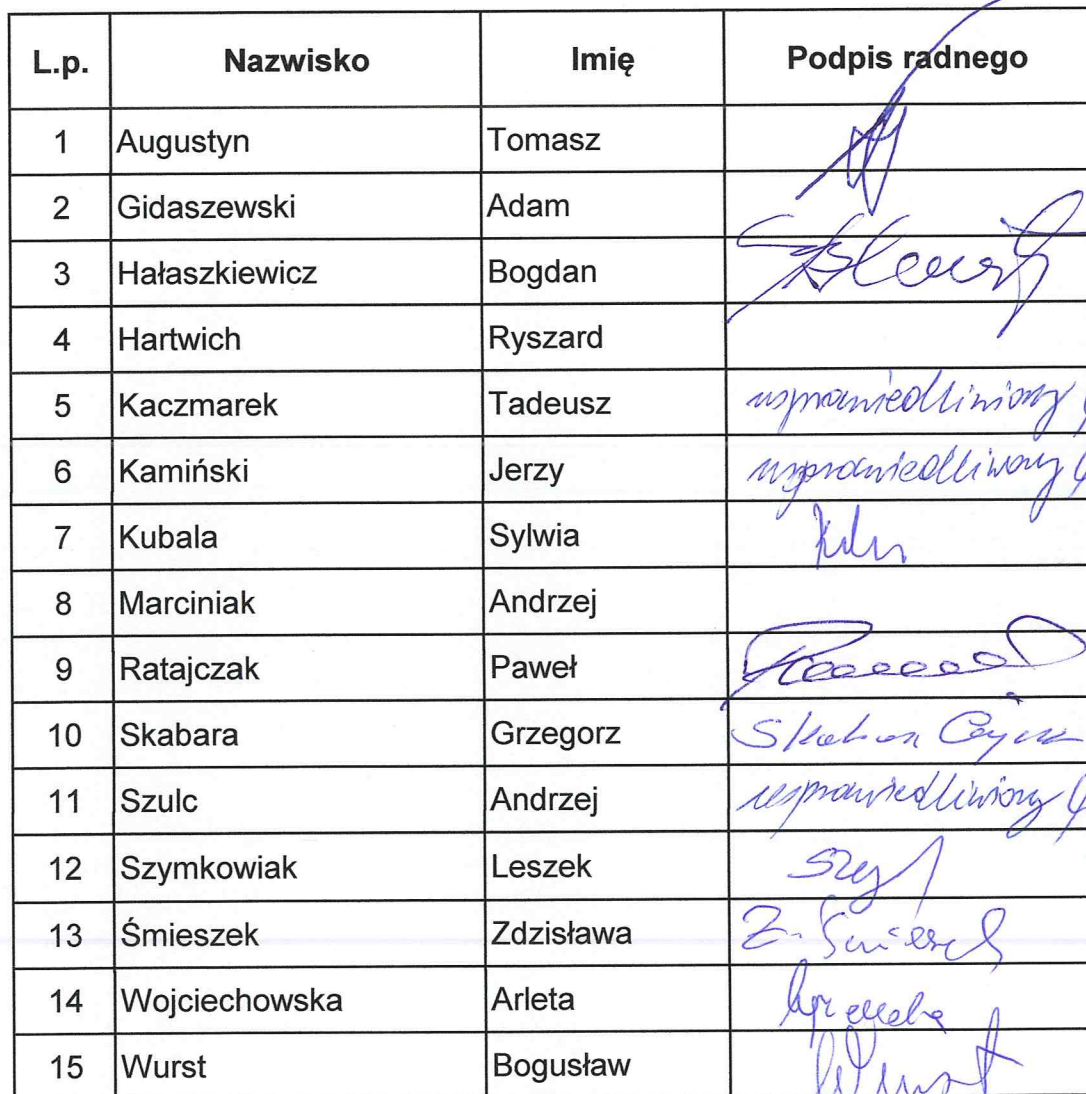 L.p. Nazwisko Imię Podpis radnego
1 Augustyn Tomasz
2 Gidaszewski Adam
3 Hałaszkiewicz Bogdan
4 Hartwich Ryszard
5 Kaczmarek Tadeusz usprawiedliwiony
6 Kamiński Jerzy usprawiedliwiony
7 Kubala Sylwia
8 Marciniak Andrzej
9 Ratajczak Paweł
10 Skabara Grzegorz
11 Szulc Andrzej usprawiedliwiony
12 Szymkowiak Leszek
13 Śmieszek Zdzisława Z. Śmieszek
14 Wojciechowska Arleta
15 Wurst Bogusław Wurst